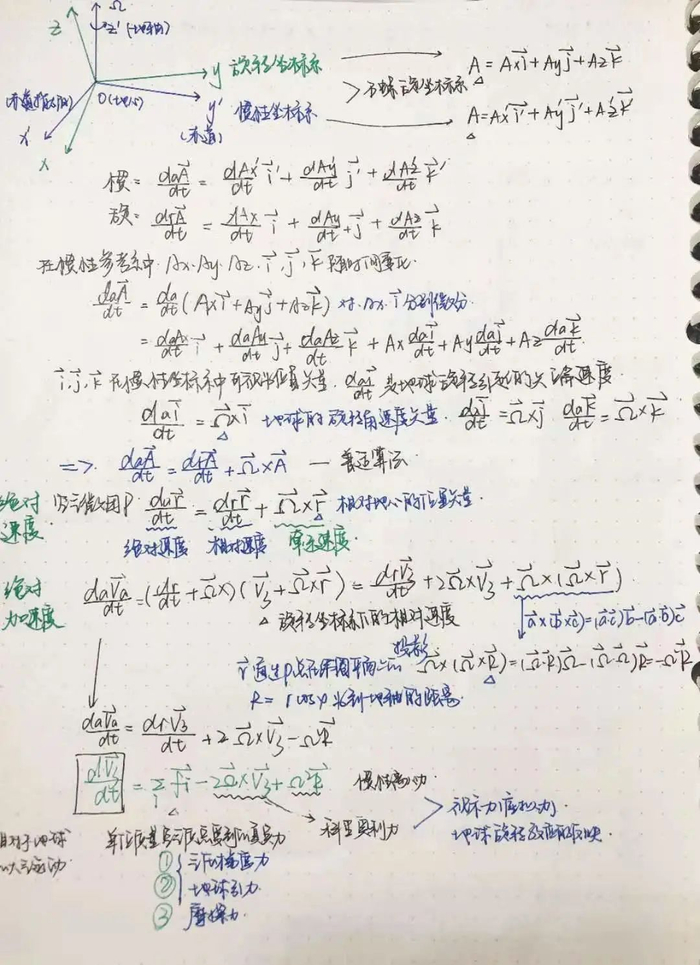 Ω
z
z'(地轴)
y 旋转坐标系
A = Ax i⃗ + Ay j⃗ + Az k⃗
O(地心)
y' 惯性坐标系
(赤道)
A = Ax' i⃗' + Ay' j⃗' + Az' k⃗'
x'
x
惯: daA⃗/dt = dAx'/dt i⃗' + dAy'/dt j⃗' + dAz'/dt k⃗'
旋: drA⃗/dt = dAx/dt i⃗ + dAy/dt j⃗ + dAz/dt k⃗
在惯性参考系中, Ax, Ay, Az, i⃗, j⃗, k⃗ 随时间变化.
daA⃗/dt = da/dt (Ax i⃗ + Ay j⃗ + Az k⃗) 对 Ax, i⃗ 分别微分
= daAx/dt i⃗ + daAy/dt j⃗ + daAz/dt k⃗ + Ax dai⃗/dt + Ay daj⃗/dt + Az dak⃗/dt
i⃗, j⃗, k⃗ 在惯性坐标系中可视半位置矢量. dai⃗/dt 为地球旋转引起的矢端速度
dai⃗/dt = Ω⃗×i⃗ 地球的旋转角速度矢量. daj⃗/dt = Ω⃗×j⃗ dak⃗/dt = Ω⃗×k⃗
=> daA⃗/dt = drA⃗/dt + Ω⃗×A⃗ — 普适算法
绝对速度
空气微团P dar⃗/dt = drr⃗/dt + Ω⃗×r⃗ 相对地心的位置矢量.
绝对速度 相对速度 牵连速度.
绝对加速度
daV⃗a/dt = (dr/dt + Ω⃗×)(V⃗3 + Ω⃗×r⃗) = drV⃗3/dt + 2Ω⃗×V⃗3 + Ω⃗×(Ω⃗×r⃗)
旋转坐标系下的相对速度
a⃗×(b⃗×c⃗)=(a⃗·c⃗)b⃗-(a⃗·b⃗)c⃗
投影
r⃗ 通过P点在纬圈平面上 Ω⃗×(Ω⃗×R⃗)=(Ω⃗·R⃗)Ω⃗-(Ω⃗·Ω⃗)R⃗=-Ω²R⃗
R = r cosφ 为到地轴的距离
daV⃗a/dt = drV⃗3/dt + 2Ω⃗×V⃗3 - Ω²R⃗
dV⃗3/dt = Σi F⃗i - 2Ω⃗×V⃗3 + Ω²R⃗ 惯性离心力
科里奥利力
视示力(虚拟力)
地球旋转效应的反映
相对于地球
大气运动
单位质量空气质点受到的真实力
① 气压梯度力
② 地球引力
③ 摩擦力